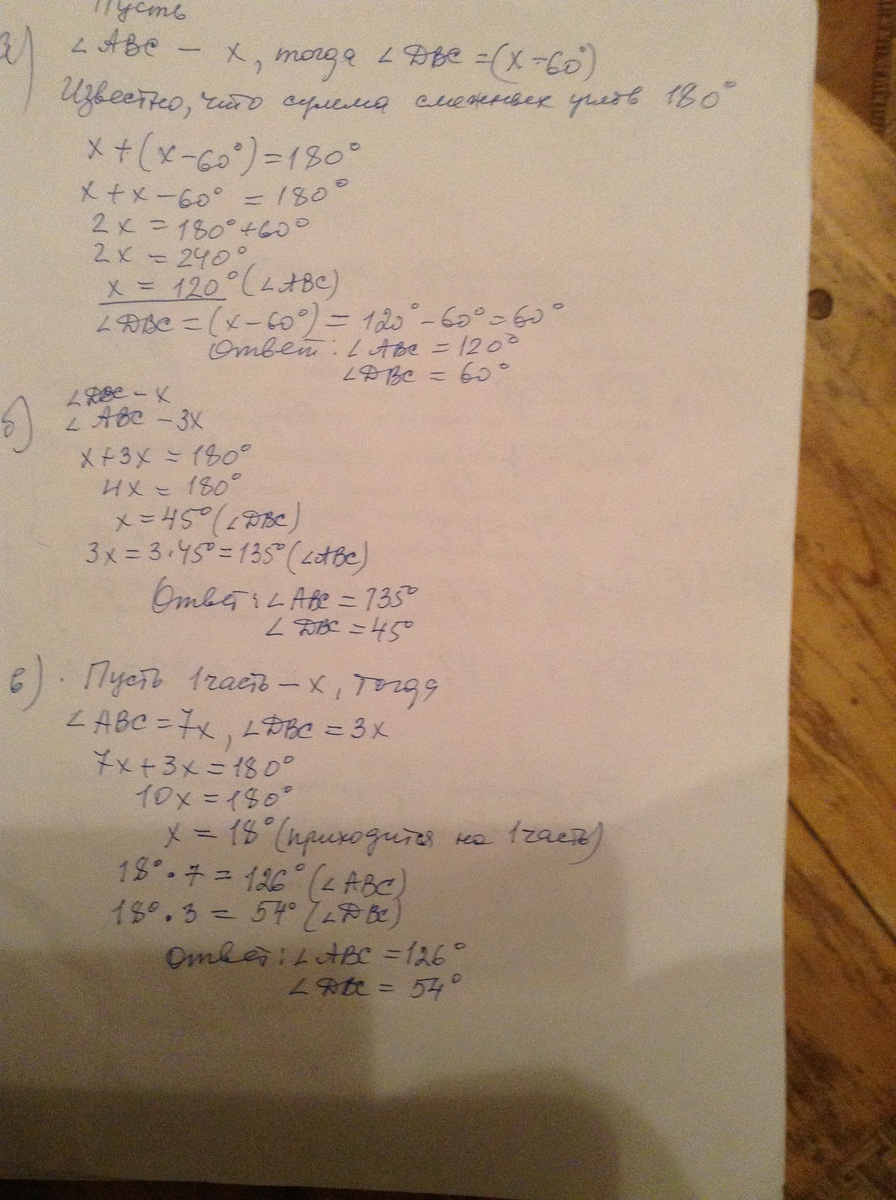 Пусть
а) ∠ABC – x, тогда ∠DBC = (x – 60°)
Известно, что сумма смежных углов 180°
x + (x – 60°) = 180°
x + x – 60° = 180°
2x = 180° + 60°
2x = 240°
x = 120° (∠ABC)
∠DBC = (x – 60°) = 120° – 60° = 60°
Ответ: ∠ABC = 120°
∠DBC = 60°
∠DBC – x
б) ∠ABC – 3x
x + 3x = 180°
4x = 180°
x = 45° (∠DBC)
3x = 3·45° = 135° (∠ABC)
Ответ: ∠ABC = 135°
∠DBC = 45°
в) Пусть 1 часть – x, тогда
∠ABC = 7x, ∠DBC = 3x
7x + 3x = 180°
10x = 180°
x = 18° (приходится на 1 часть)
18° · 7 = 126° (∠ABC)
18° · 3 = 54° (∠DBC)
Ответ: ∠ABC = 126°
∠DBC = 54°